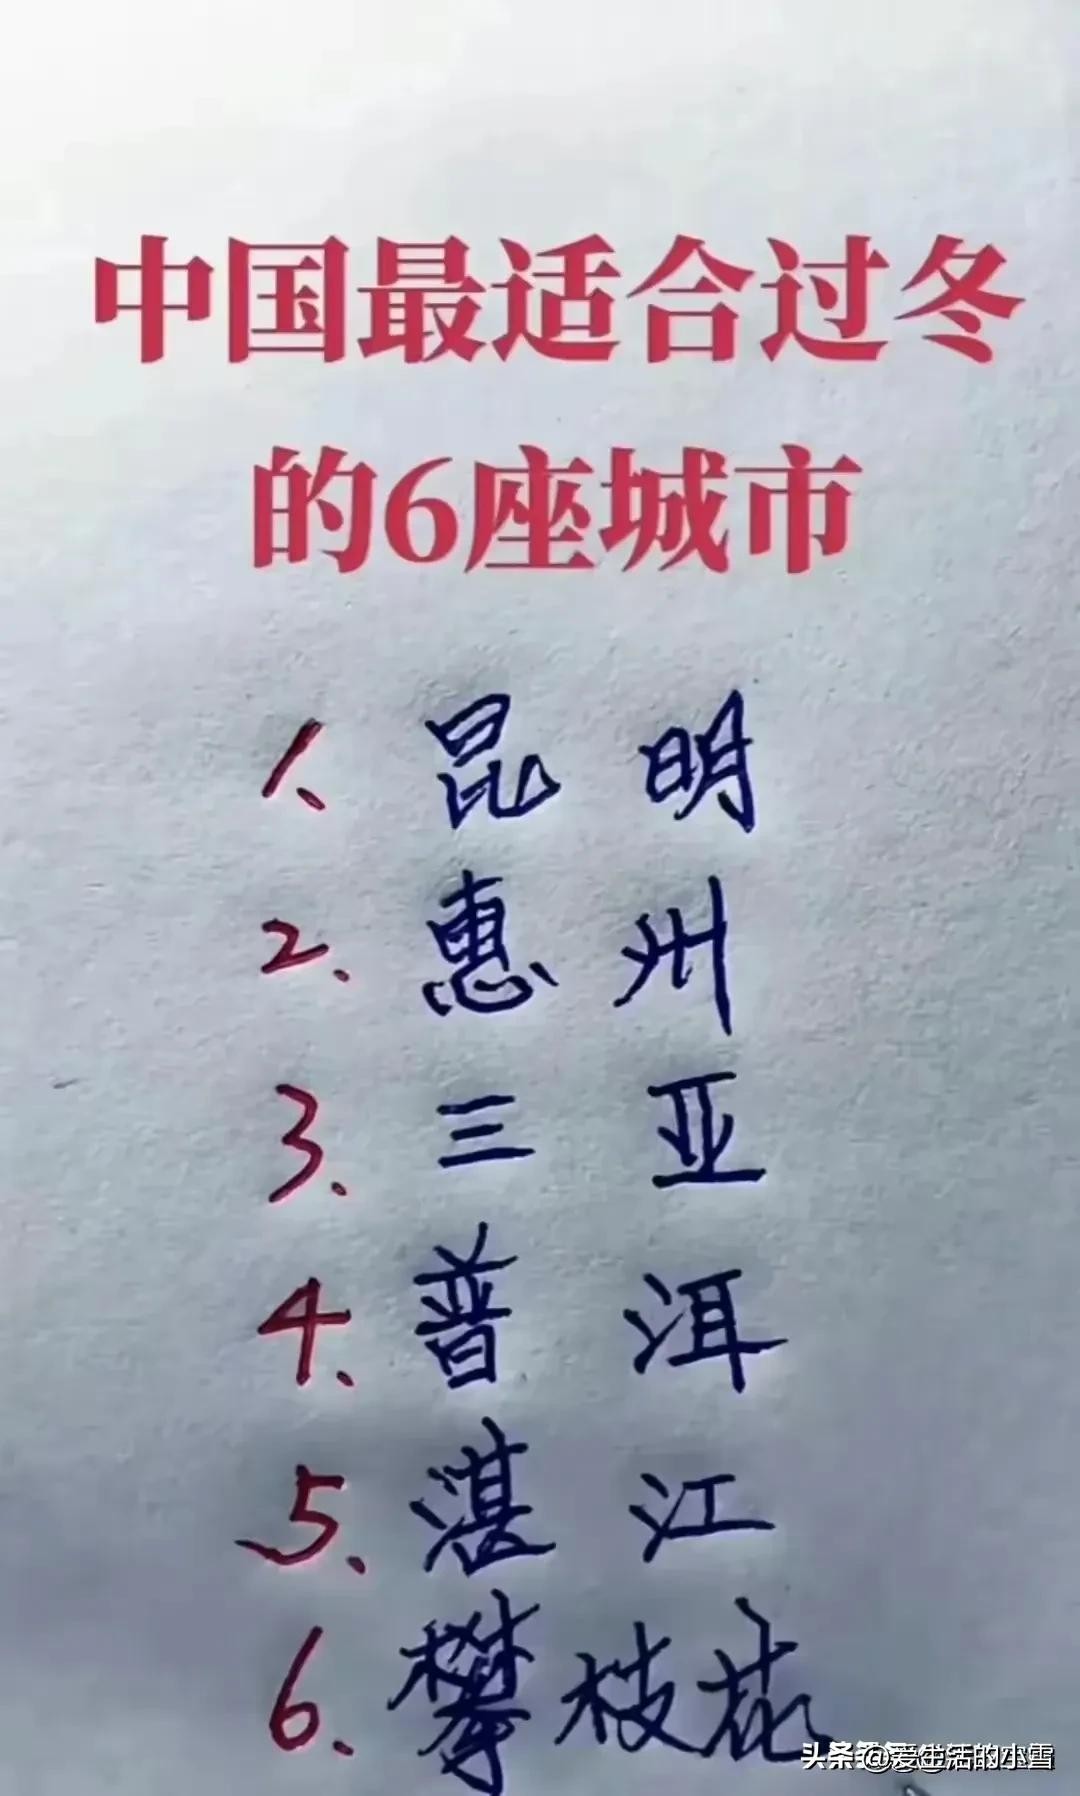 中国最适合过冬
的6座城市
1. 昆明
2. 惠州
3. 三亚
4. 普洱
5. 湛江
6. 攀枝花
头条 @爱生活的小雪